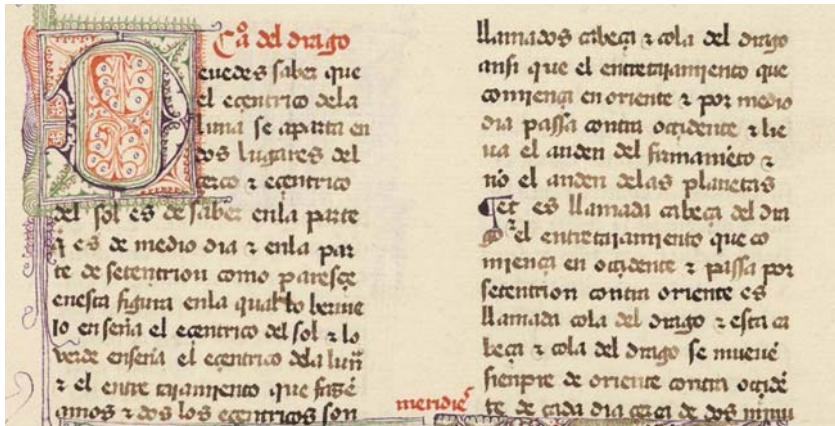 Ca del drago
Deuedes saber que
el eçentrico dela
luna se aparta en
dos lugares del
çerco ⁊ eçentrico
del sol es de saber enla parte
q̄ es de medio dia ⁊ enla par
te de setentrion como paresçe
enesta figura enla qual lo berme
lo enseña el eçentrico del sol ⁊ lo
verde enseña el eçentrico dela luñ
⁊ el entre tajamiento que fazē
amos ⁊ dos los eçentricos son
llamados cabeça ⁊ cola del drago
ansi que el entretajamiento que
comiença en oriente ⁊ por medio
dia passa contra oçidente ⁊ lie
ua el anden del firmamiēto ⁊
nō el anden delas planetas
et es llamada cabeça del dra
go ⁊ el entretajamiento que co
miença en oçidente ⁊ passa por
setentrion contra oriente es
llamada cola del drago ⁊ esta ca
beça ⁊ cola del drago se mueuē
sienpre de oriente contra oçidē
te de cada dia çerca de dos minu
meridies